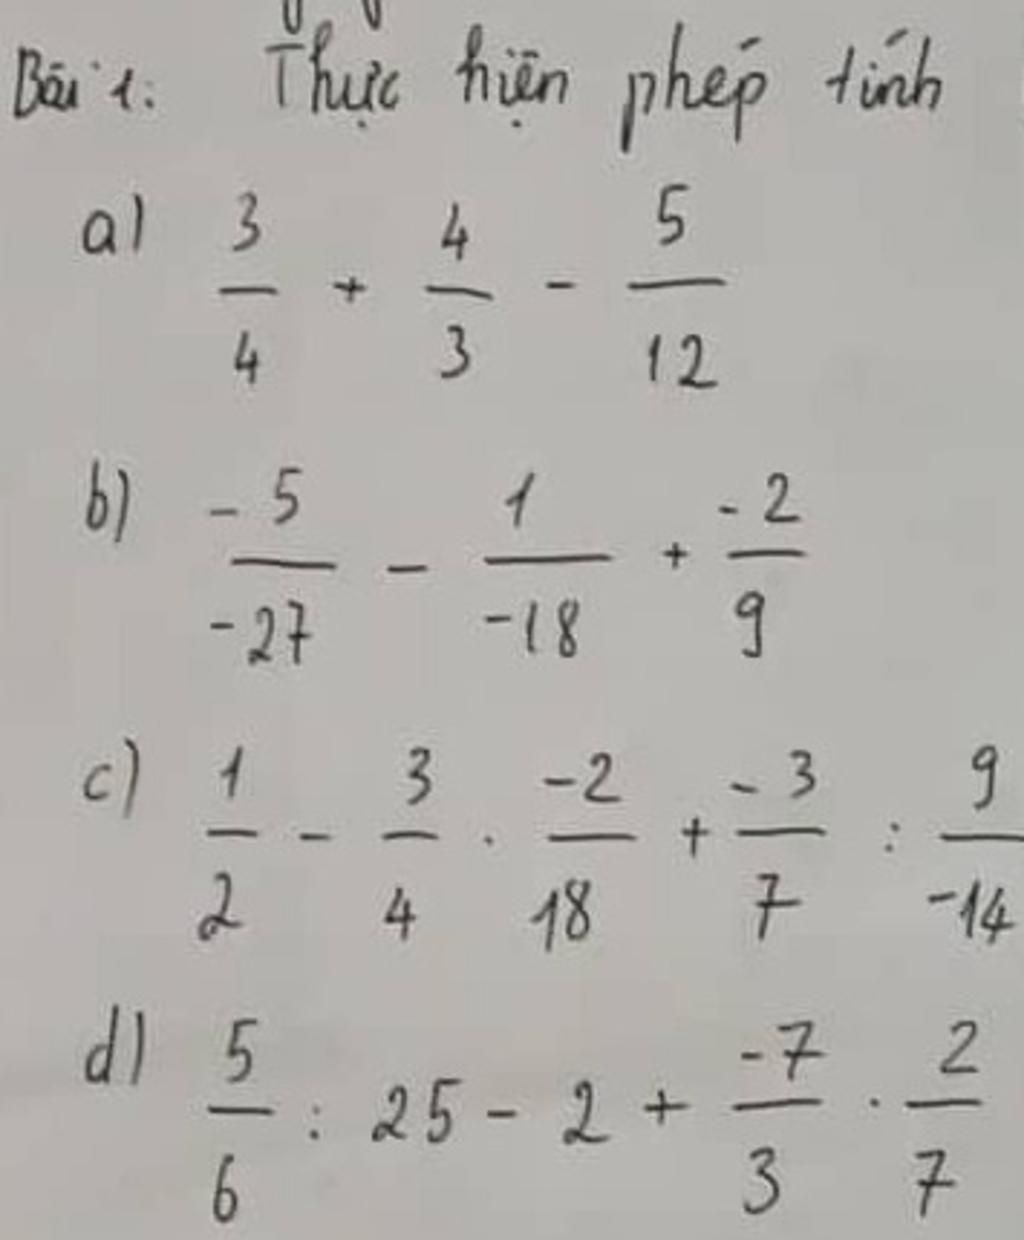 Bài 1: Thực hiện phép tính
a) 3/4 + 4/3 - 5/12
b) -5/-27 - 1/-18 + -2/9
c) 1/2 - 3/4 . -2/18 + -3/7 : 9/-14
d) 5/6 : 25 - 2 + -7/3 . 2/7